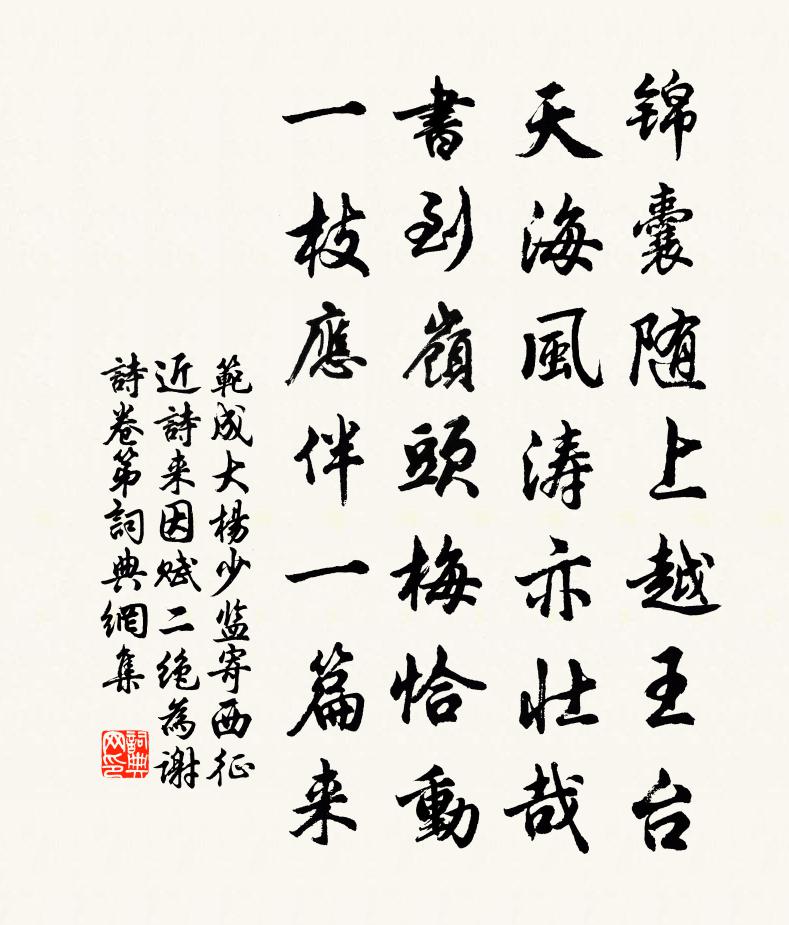 锦囊随上越王台
天海風涛亦壮哉
書到嶺頭梅恰動
一枝應伴一篇来
範成大楊少监寄西征
近詩来因赋二绝為謝
詩卷第詞典網集
詞典网印